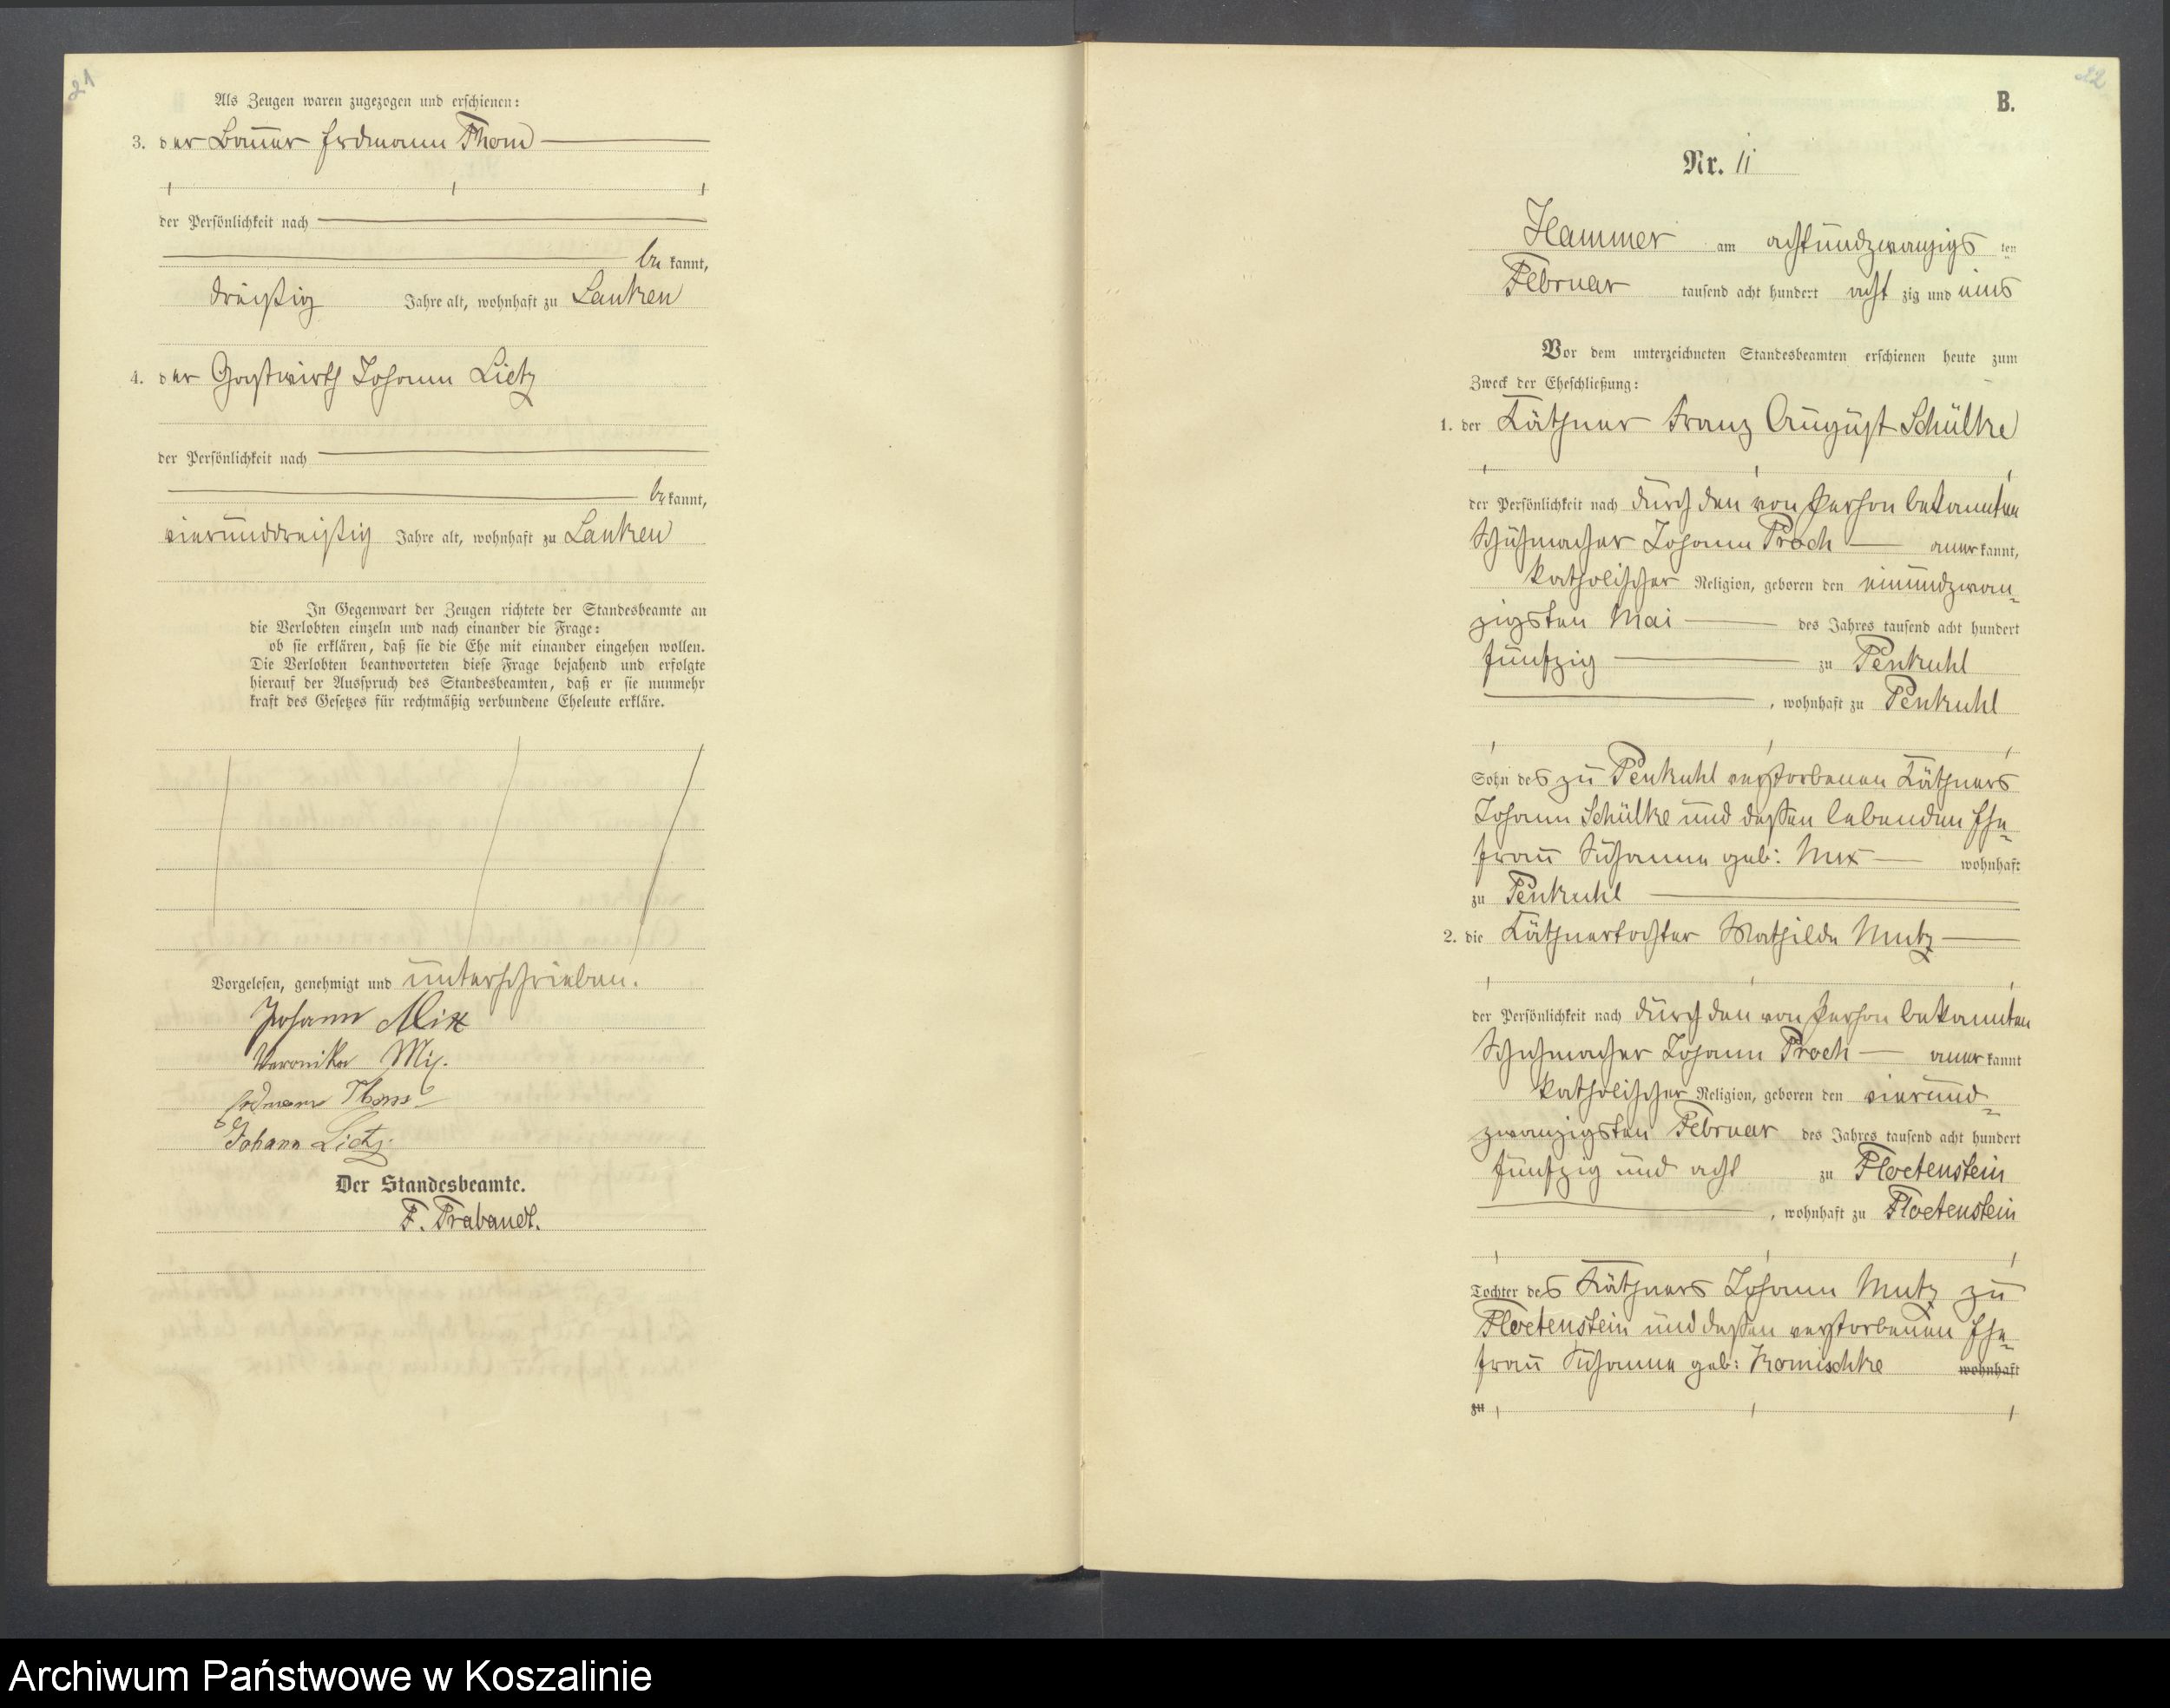 21
Als Zeugen waren zugezogen und erschienen:
3. der Bauer Erdmann Thom
der Persönlichkeit nach
bekannt,
dreißig Jahre alt, wohnhaft zu Lanken
4. der Gastwirth Johann Lietz
der Persönlichkeit nach
bekannt,
vierunddreißig Jahre alt, wohnhaft zu Lanken
In Gegenwart der Zeugen richtete der Standesbeamte an
die Verlobten einzeln und nach einander die Frage:
ob sie erklären, daß sie die Ehe mit einander eingehen wollen.
Die Verlobten beantworteten diese Frage bejahend und erfolgte
hierauf der Ausspruch des Standesbeamten, daß er sie nunmehr
kraft des Gesetzes für rechtmäßig verbundene Eheleute erkläre.
Vorgelesen, genehmigt und unterschrieben.
Johann Mix
Veronika Mix.
Erdmann Thom
Johann Lietz.
Der Standesbeamte.
F. Trabandt.
22
B.
Nr. 11
Hammer am achtundzwanzigsten
Februar tausend acht hundert achtzig und eins
Vor dem unterzeichneten Standesbeamten erschienen heute zum
Zweck der Eheschließung:
1. der Käthner Franz August Schülke
der Persönlichkeit nach durch den von Person bekannten
Schuhmacher Johann Proch anerkannt,
katholischer Religion, geboren den einundzwan-
zigsten Mai des Jahres tausend acht hundert
fünfzig zu Penkuhl
, wohnhaft zu Penkuhl
Sohn des zu Penkuhl verstorbenen Käthners
Johann Schülke und dessen lebenden Ehe-
frau Susanna geb: Mix wohnhaft
zu Penkuhl
2. die Käthnertochter Mathilde Mutz
der Persönlichkeit nach durch den von Person bekannten
Schuhmacher Johann Proch anerkannt
katholischer Religion, geboren den vierund-
zwanzigsten Februar des Jahres tausend acht hundert
fünfzig und acht zu Floetenstein
, wohnhaft zu Floetenstein
Tochter des Käthners Johann Mutz zu
Floetenstein und dessen verstorbenen Ehe-
frau Susanna geb: Komischke wohnhaft
zu
Archiwum Państwowe w Koszalinie